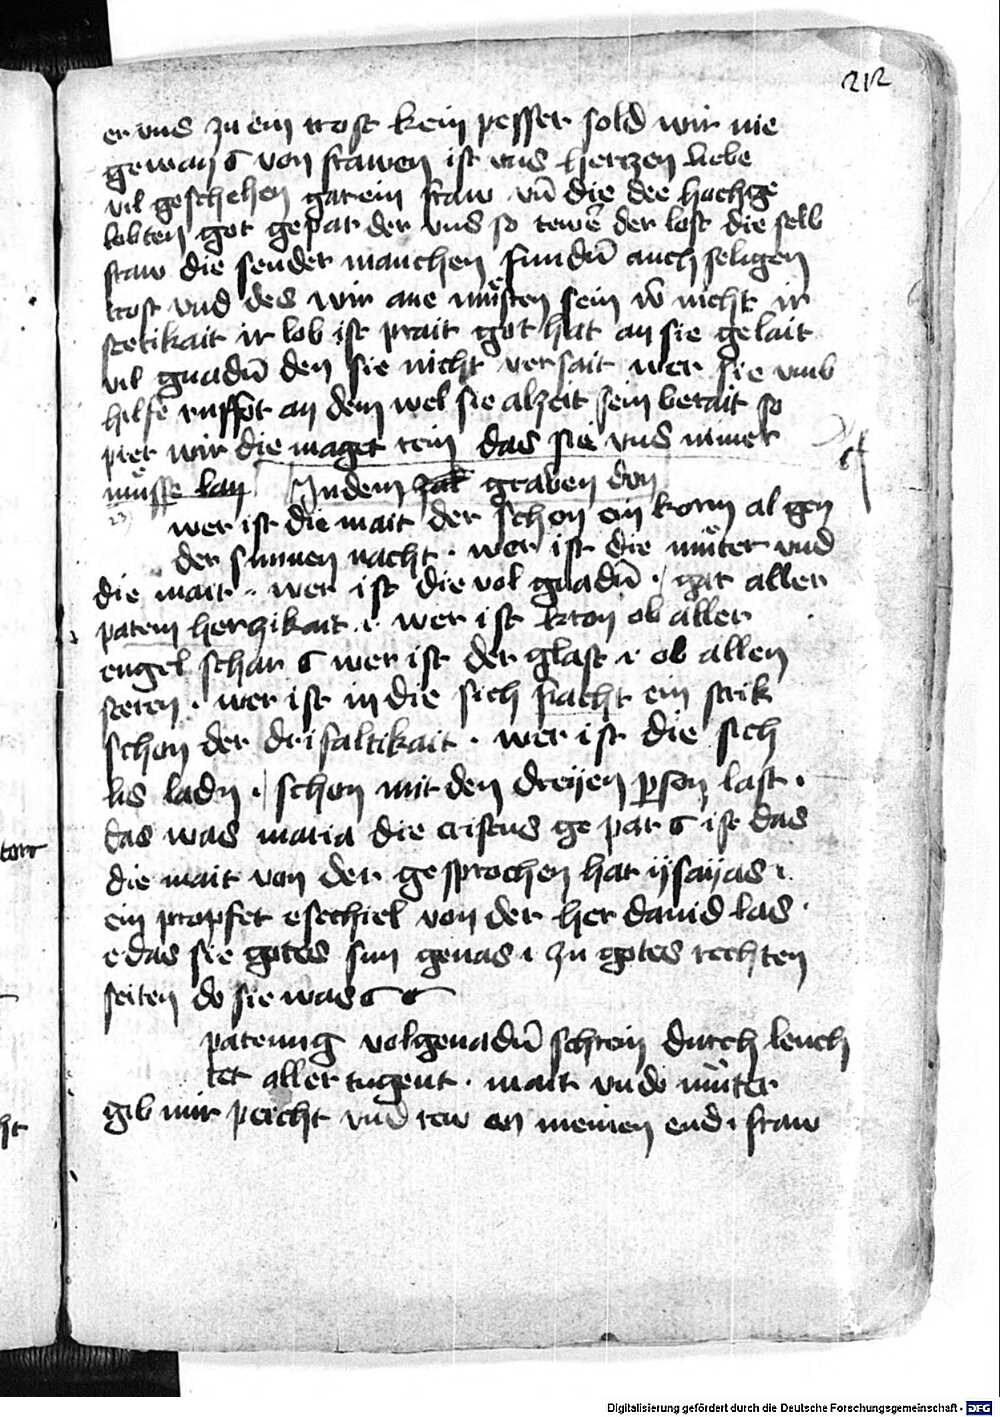 212
er vns zu ein trost kein pesser sold wir nie
gewan von frawen ist vns hertzen liebe
vil geschehen gar ein fraw vn̄ die dee hochge
lobten got gepar der vns so tewē der lost die selb
fraw die sender manchen sundn̄ auch seligen
trost vnd des wir ane mu̍sten sein vn̄ nicht ir
stetikait ir lob ist prait got hat an sie gelait
vil gnadn̄ den sie nicht versait wer sie vmb
hilfe rufft an dem wel sie alzeit sein berait so
piet wir die maget rein das sie vns nimer
mu̍sse lan Jn dem graben don
wer ist die mait der schon ein korm al gen
der sunnen nacht · wer ist die mu̍ter vnd
die mait · wer ist die vol gnadn̄ · gar aller
parem herczikait · wer ist kron ob aller
engel schar wer ist der glast ob allen
steren · wer ist in die sich flacht ein strik
schon der drifaltikait · wer ist die sich
lis ladn · schon mit den dreyen ꝑson last ·
das was maria die cristus ge par ist das
die mait von der gesprochen hat ysayas
ein propfet esechiel von der her dauid las ·
e das sie gotes sun genas zu gotes rechten
seiten do sie was
parmig vol genadn̄ schrein durch leuch
tet aller tugent · mait vnde mu̍ter
gib mir peicht vnd rew an meinen end fraw
Digitalisierung gefördert durch die Deutsche Forschungsgemeinschaft - DFG